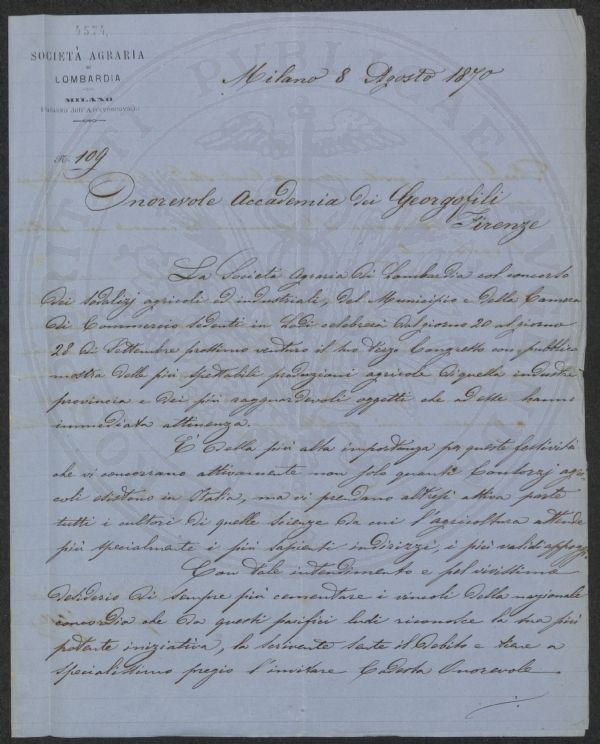 4574
SOCIETÀ AGRARIA
DI
LOMBARDIA
MILANO
Palazzo dell'Arcivescovato
Milano 8 Agosto 1870
N. 109
Onorevole Accademia dei Georgofili
Firenze
La Società Agraria di Lombardia col concorso
dei sodalizj agricoli ed industriali, del Municipio e della Camera
di Commercio sedenti in Lodi celebrerà dal giorno 20 al giorno
28 di Settembre prossimo venturo il suo terzo Congresso con pubblica
mostra delle più spettabili produzioni agricole di quella industre
provincia e dei più ragguardevoli oggetti che ad esse hanno
immediata attinenza.
È della più alta importanza per queste festività
che vi concorrano attivamente non solo quanti Comizzj agri-
coli esistono in Italia, ma vi prendano altresì attiva parte
tutti i cultori di quelle scienze da cui l'agricoltura attende
più specialmente i più sapienti indirizzi, i più validi appoggi.
Con tale intendimento e pel vivissimo
desiderio di sempre più cementare i vincoli della nazionale
concordia che da questi pacifici ludi riconosce la sua più
potente iniziativa, la scrivente sente il debito e tiene a
specialissimo pregio l'invitare Codesta Onorevole